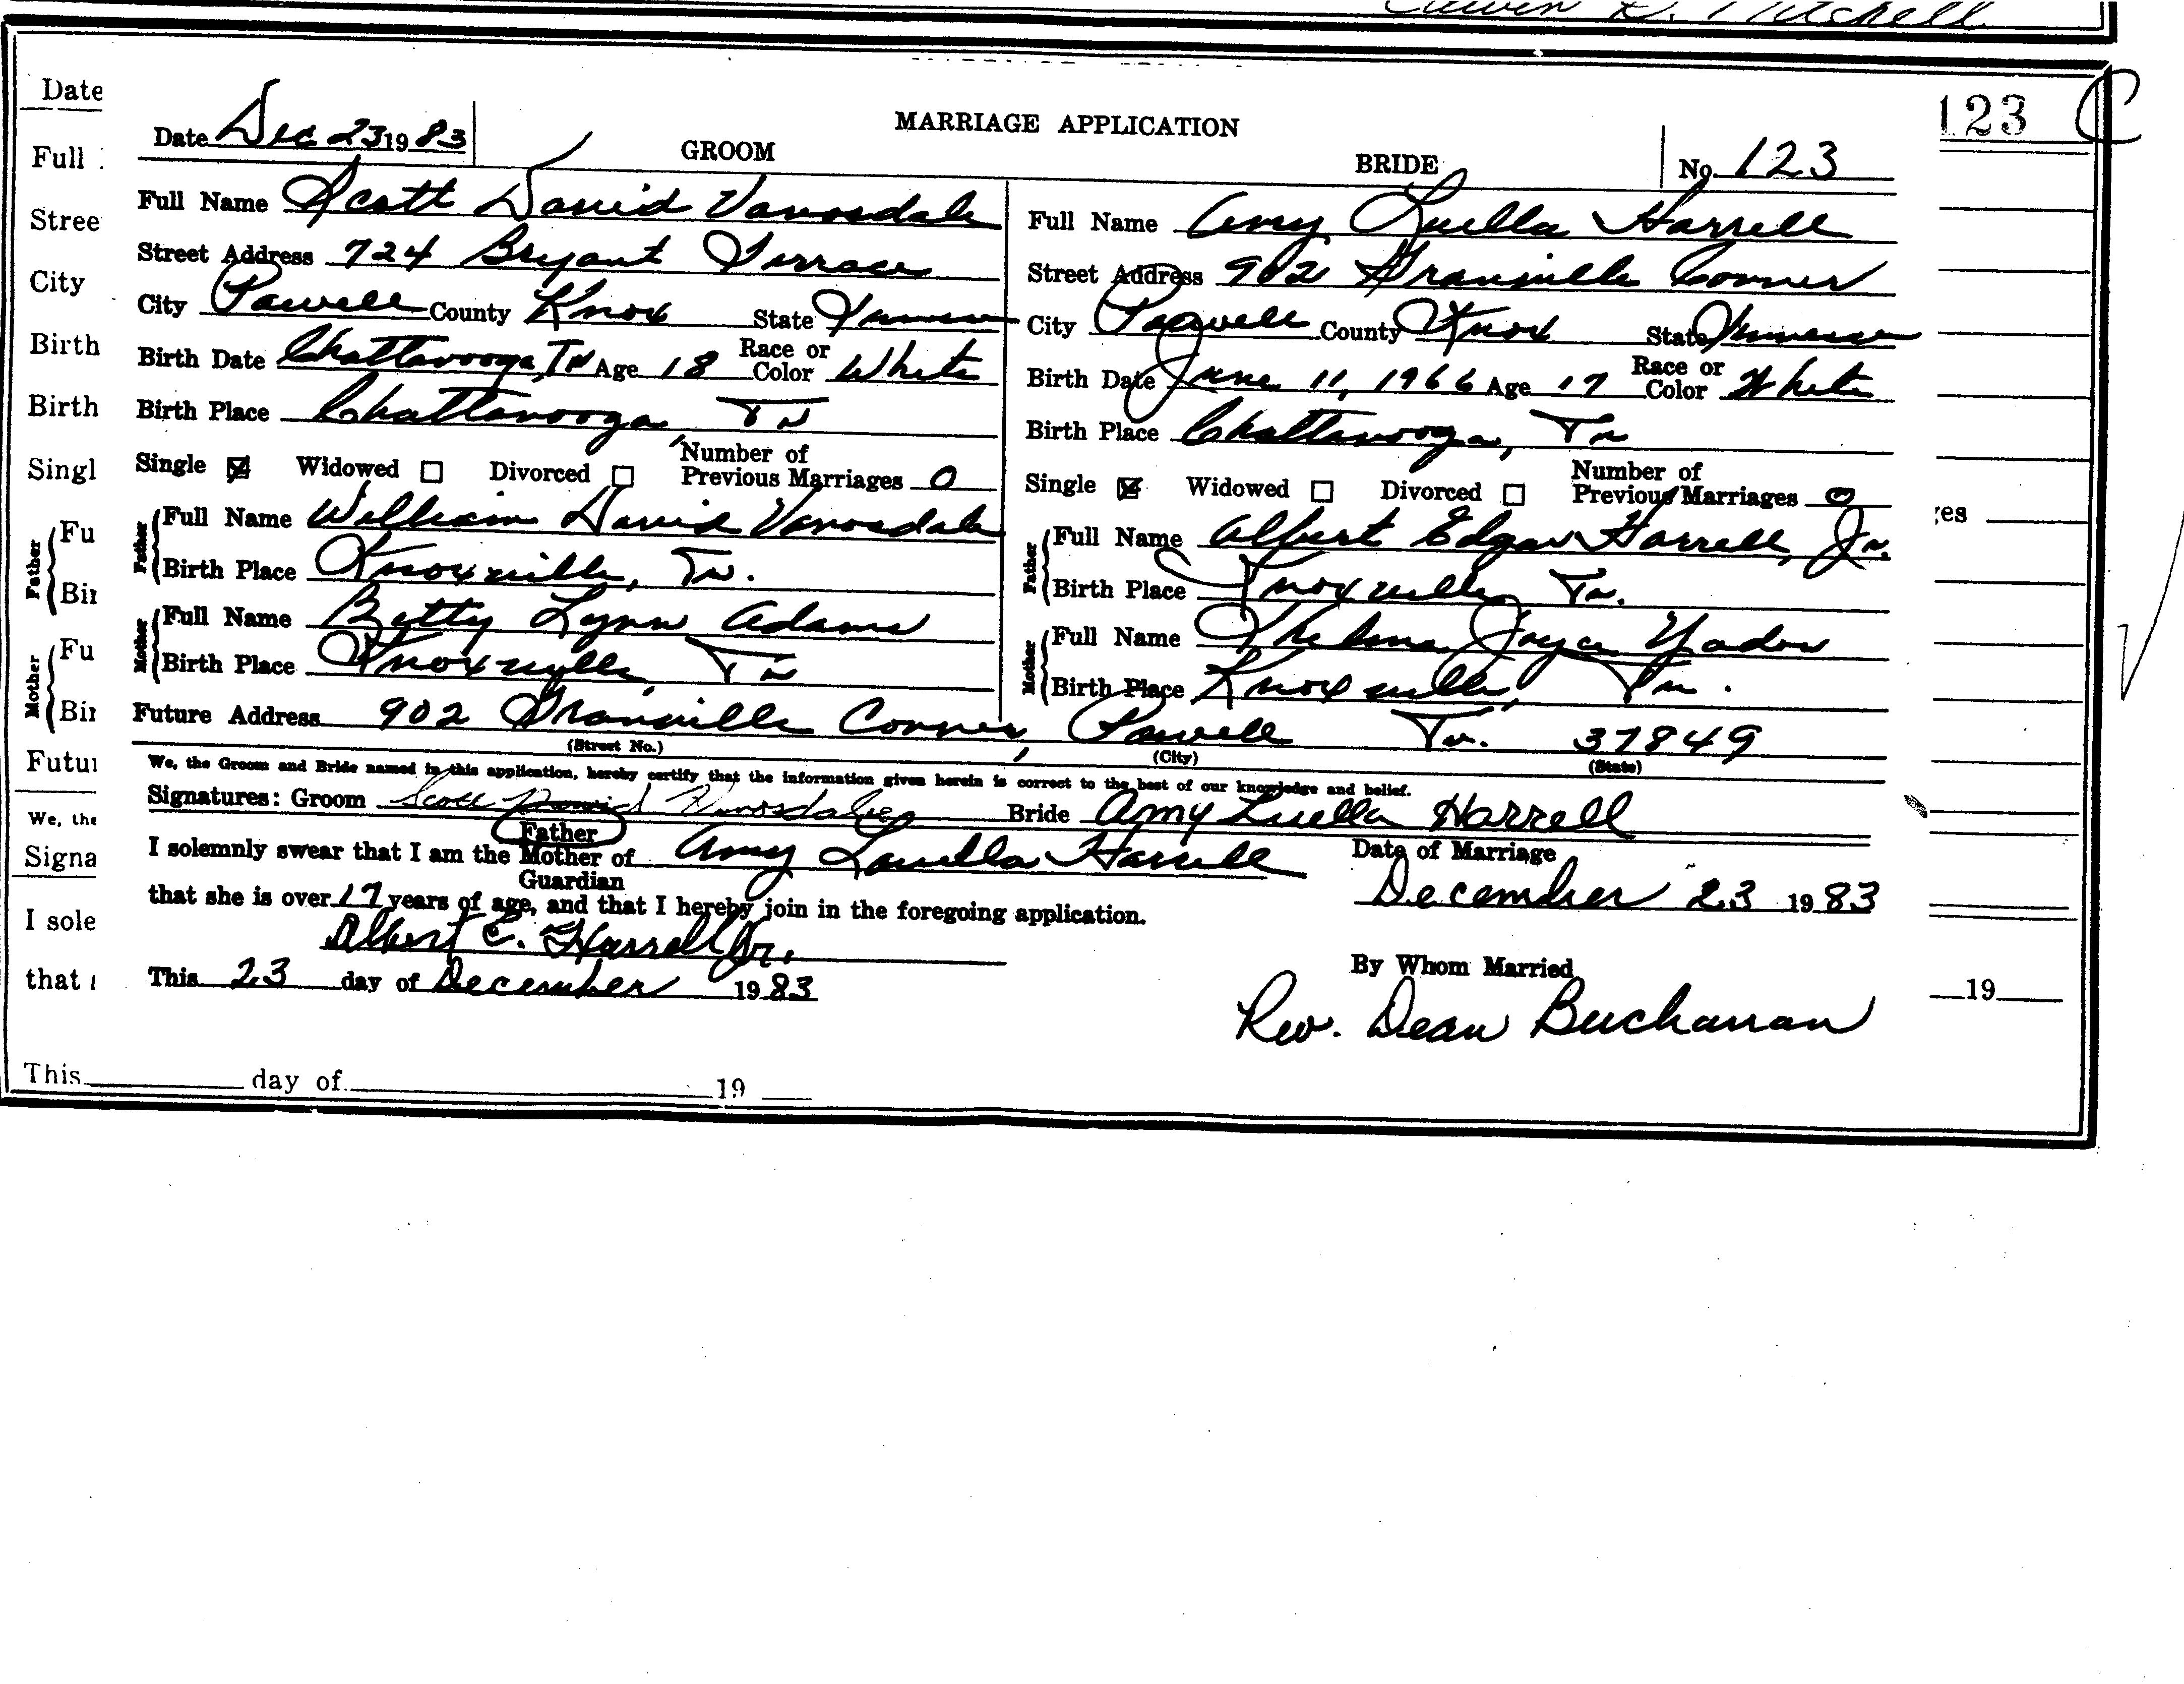 Mitchell
MARRIAGE APPLICATION
123 C
Date Dec 23 1983 GROOM BRIDE No. 123
Full Name Scott David Vanosdale
Street Address 724 Bryant Terrace
City Powell County Knox State Tennessee
Birth Date Chattanooga, Tn Age 18 Race or Color White
Birth Place Chattanooga Tn
Single ☒ Widowed ☐ Divorced ☐ Number of Previous Marriages 0
Father Full Name William David Vanosdale
Birth Place Knoxville, Tn.
Mother Full Name Betty Lynn Adams
Birth Place Knoxville, Tn
Full Name Amy Luella Harrell
Street Address 902 Granville Conner
City Powell County Knox State Tennessee
Birth Date June 11, 1966 Age 17 Race or Color White
Birth Place Chattanooga, Tn
Single ☒ Widowed ☐ Divorced ☐ Number of Previous Marriages 0
Father Full Name Albert Edgar Harrell, Jr.
Birth Place Knoxville, Tn.
Mother Full Name Thelma Joyce
Birth Place Knoxville, Tn.
Future Address 902 Granville Conner, Powell Tn. 37849
(Street No.) (City) (State)
We, the Groom and Bride named in this application, hereby certify that the information given herein is correct to the best of our knowledge and belief.
Signatures: Groom Scott David Vanosdale Bride Amy Luella Harrell
Father
I solemnly swear that I am the Mother of Amy Louella Harrell
Guardian
that she is over 17 years of age, and that I hereby join in the foregoing application.
Albert E. Harrell Jr.
This 23 day of December 1983
Date of Marriage
December 23 1983
By Whom Married
Rev. Dean Buchanan
Date
Full
Stree
City
Birth
Birth
Singl
Father Fu
Bir
Mother Fu
Bir
Futur
We, the
Signa
I sole
that
This day of 19
es
19